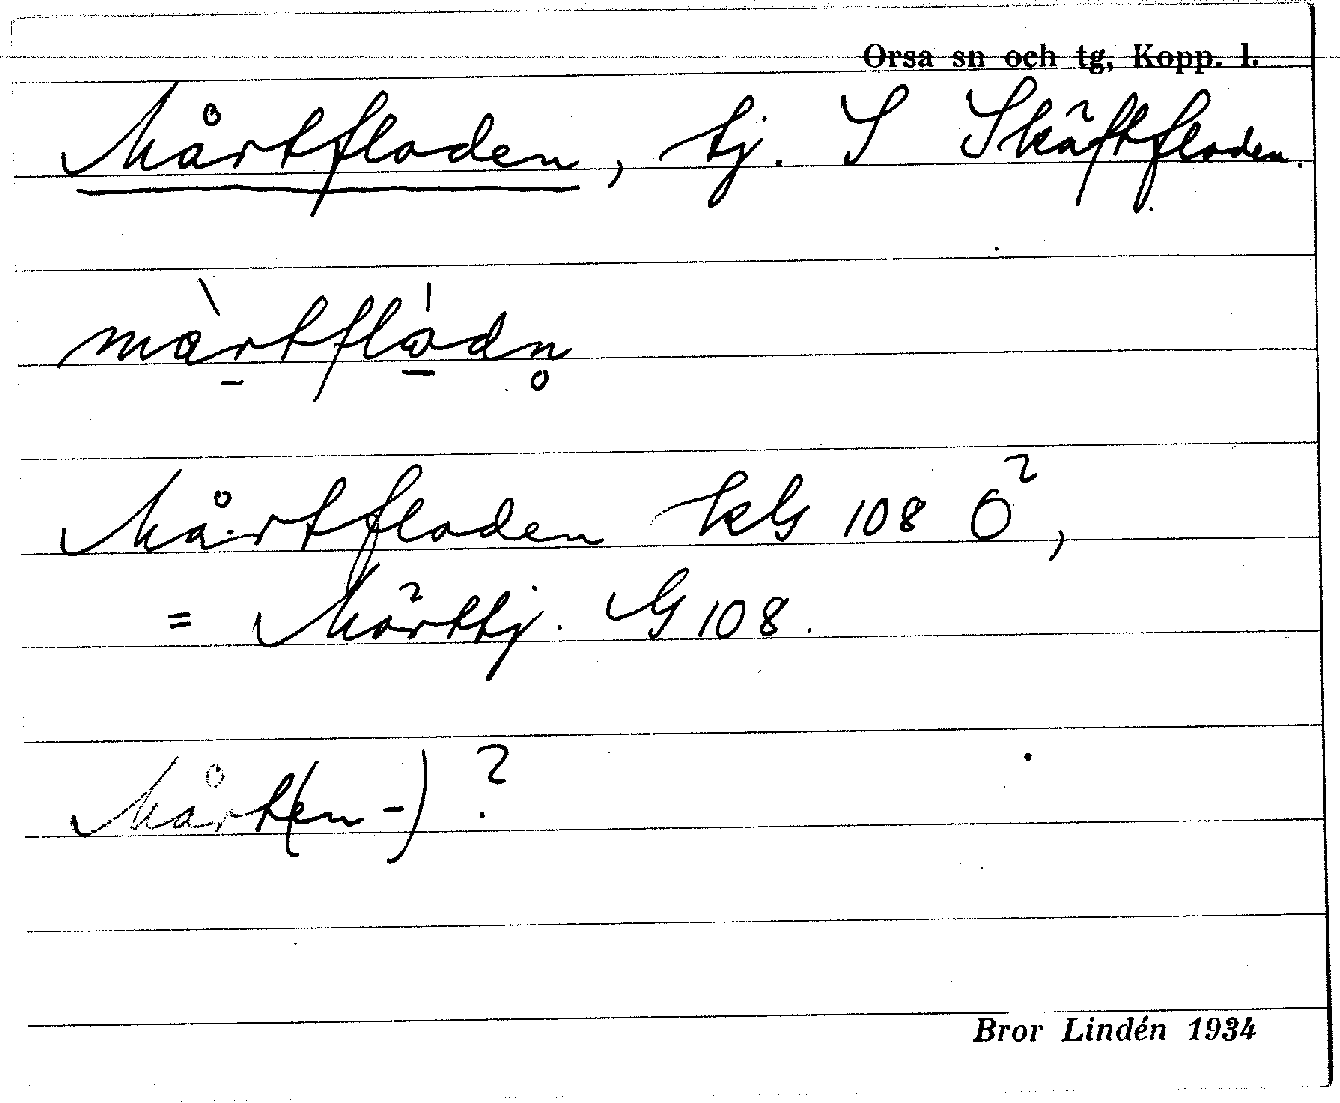 Orsa sn och tg, Kopp. l.
Mårtfloden, tj. S Skäftfloden.
màrtflòdn̥
Mårtfloden kG 108 Ö²,
= Mörttj. G 108.
Mårt(en-) ?
Bror Lindén 1934